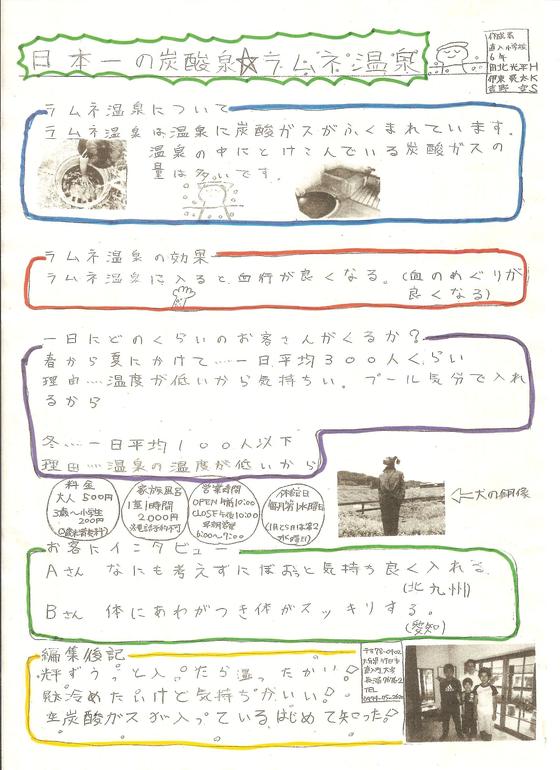 日本一の炭酸泉☆ラムネ温泉
作成者
直入小学校
6年
ラムネ温泉について
ラムネ温泉は温泉に炭酸ガスがふくまれています。
温泉の中にとけこんでいる炭酸ガスの
量は多いです。
ラムネ温泉の効果
ラムネ温泉に入ると血行が良くなる。(血のめぐりが
良くなる)
一日にどのくらいのお客さんがくるか?
春から夏にかけて……一日平均300人くらい
理由…温度が低いから気持ちい。プール気分で入れ
るから
冬…一日平均100人以下
理由…温泉の温度が低いから
料金
大人 500円
3歳〜小学生
200円
家族風呂
1室1時間
2,000円
営業時間
OPEN 午前10:00
CLOSE 午後10:00
休館日
毎月第1水曜日
(1月と5月は第2
水曜日)
⇐犬の銅像
お客にインタビュー
Aさん なにも考えずにぼおっと気持ち良く入れる。
(北九州)
Bさん 体にあわがつき体がスッキリする。
(愛知)
編集後記
ずうっと入ったら温ったかい
冷めたいけど気持ちがいい!
炭酸ガスが入っているはじめて知った。
〒878-0402
TEL